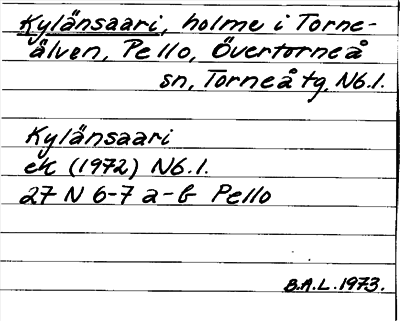 Kylänsaari, holme i Torne-
älven, Pello, Övertorneå
sn, Torneå tg, Nb.l.
Kylänsaari
ek (1972) Nb.l.
27 N 6-7 a-b Pello
B.A.L. 1973.